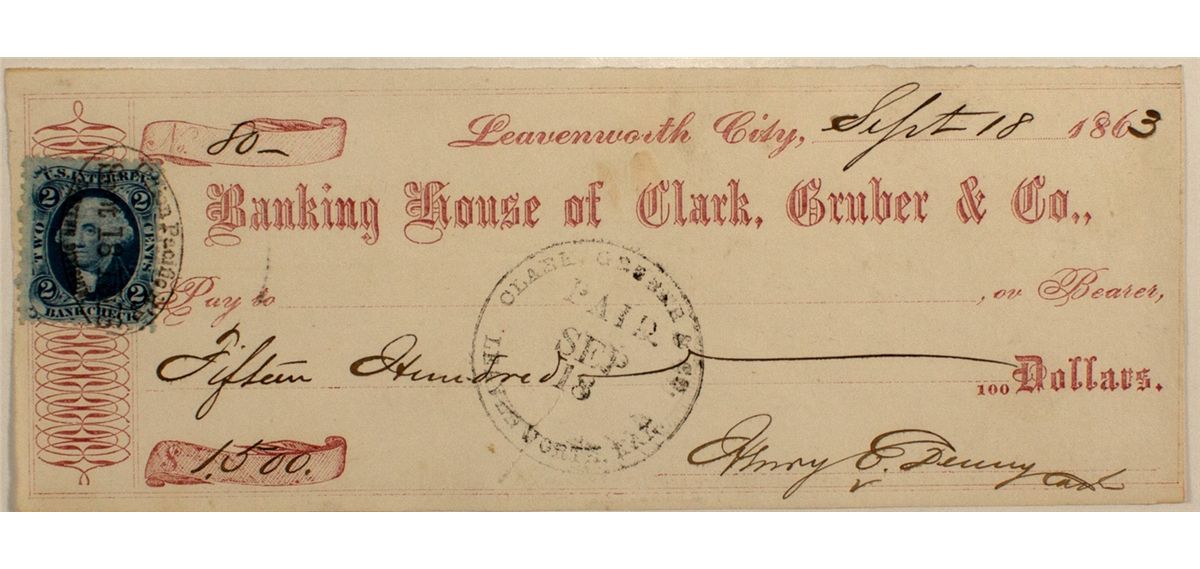 No. 80
Leavenworth City, Sept 18 1863
Banking House of Clark, Gruber & Co.,
Pay to , or Bearer,
Fifteen Hundred 100 Dollars.
$ 1,500.
Henry E. Denny
U.S. INTER. REV.
2 2
TWO CENTS
2 2
BANK CHECK
CLARK, GRUBER & CO.
PAID
SEP
18
LEAVENWORTH, KAN.